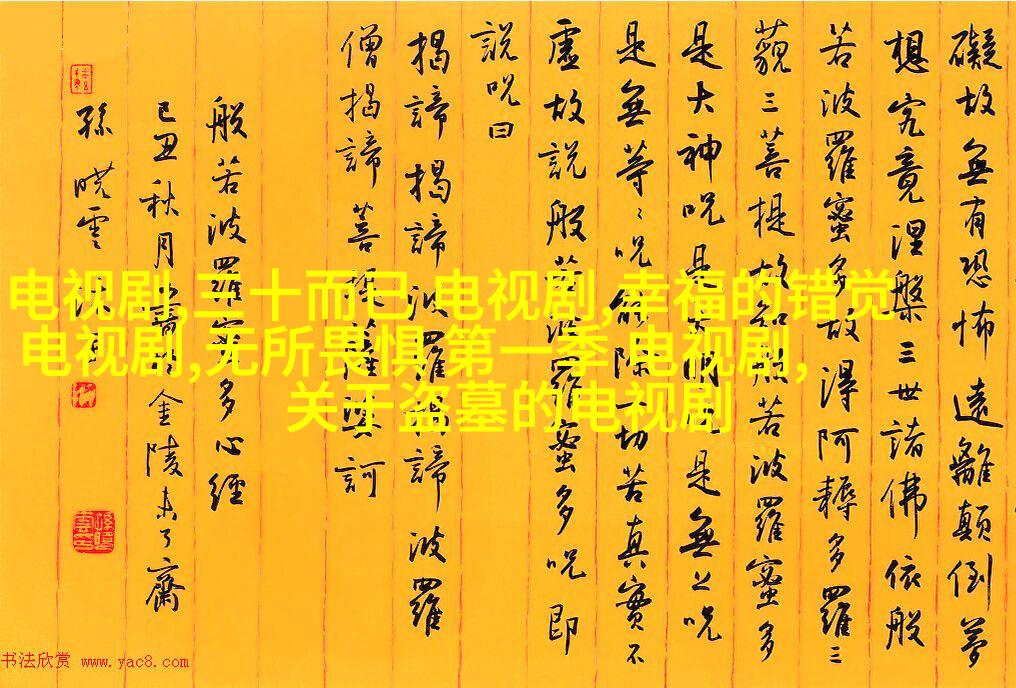 礙故無有恐怖遠離顛倒夢
想究竟涅槃三世諸佛依般
若波羅蜜多故得阿耨多羅三
藐三菩提故知般若波羅蜜多
是大神咒是大明咒是無上咒
是無等〻咒能除一切苦真實不
虛故說般若波羅蜜多咒即
說咒曰
揭諦揭諦波羅揭諦波羅
僧揭諦菩提薩婆訶
般若波羅蜜多心經
己丑秋月金陵未了齋
孫曉雲
电视剧,三十而已 电视剧,幸福的错觉
电视剧,无所畏惧 第一季 电视剧,
关于盗墓的电视剧
书法欣赏 www.yac8.com